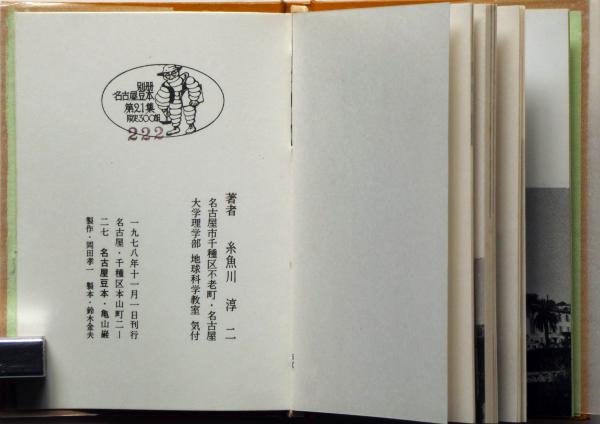 別冊
名古屋豆本
第21集
限定300部
222
著者 糸魚川淳二
名古屋市千種区不老町・名古屋
大学理学部 地球科学教室 気付
一九七八年十一月一日刊行
名古屋・千種区本山町二ー
二七 名古屋豆本・亀山巌
製作・岡田孝一 製本・鈴木金夫